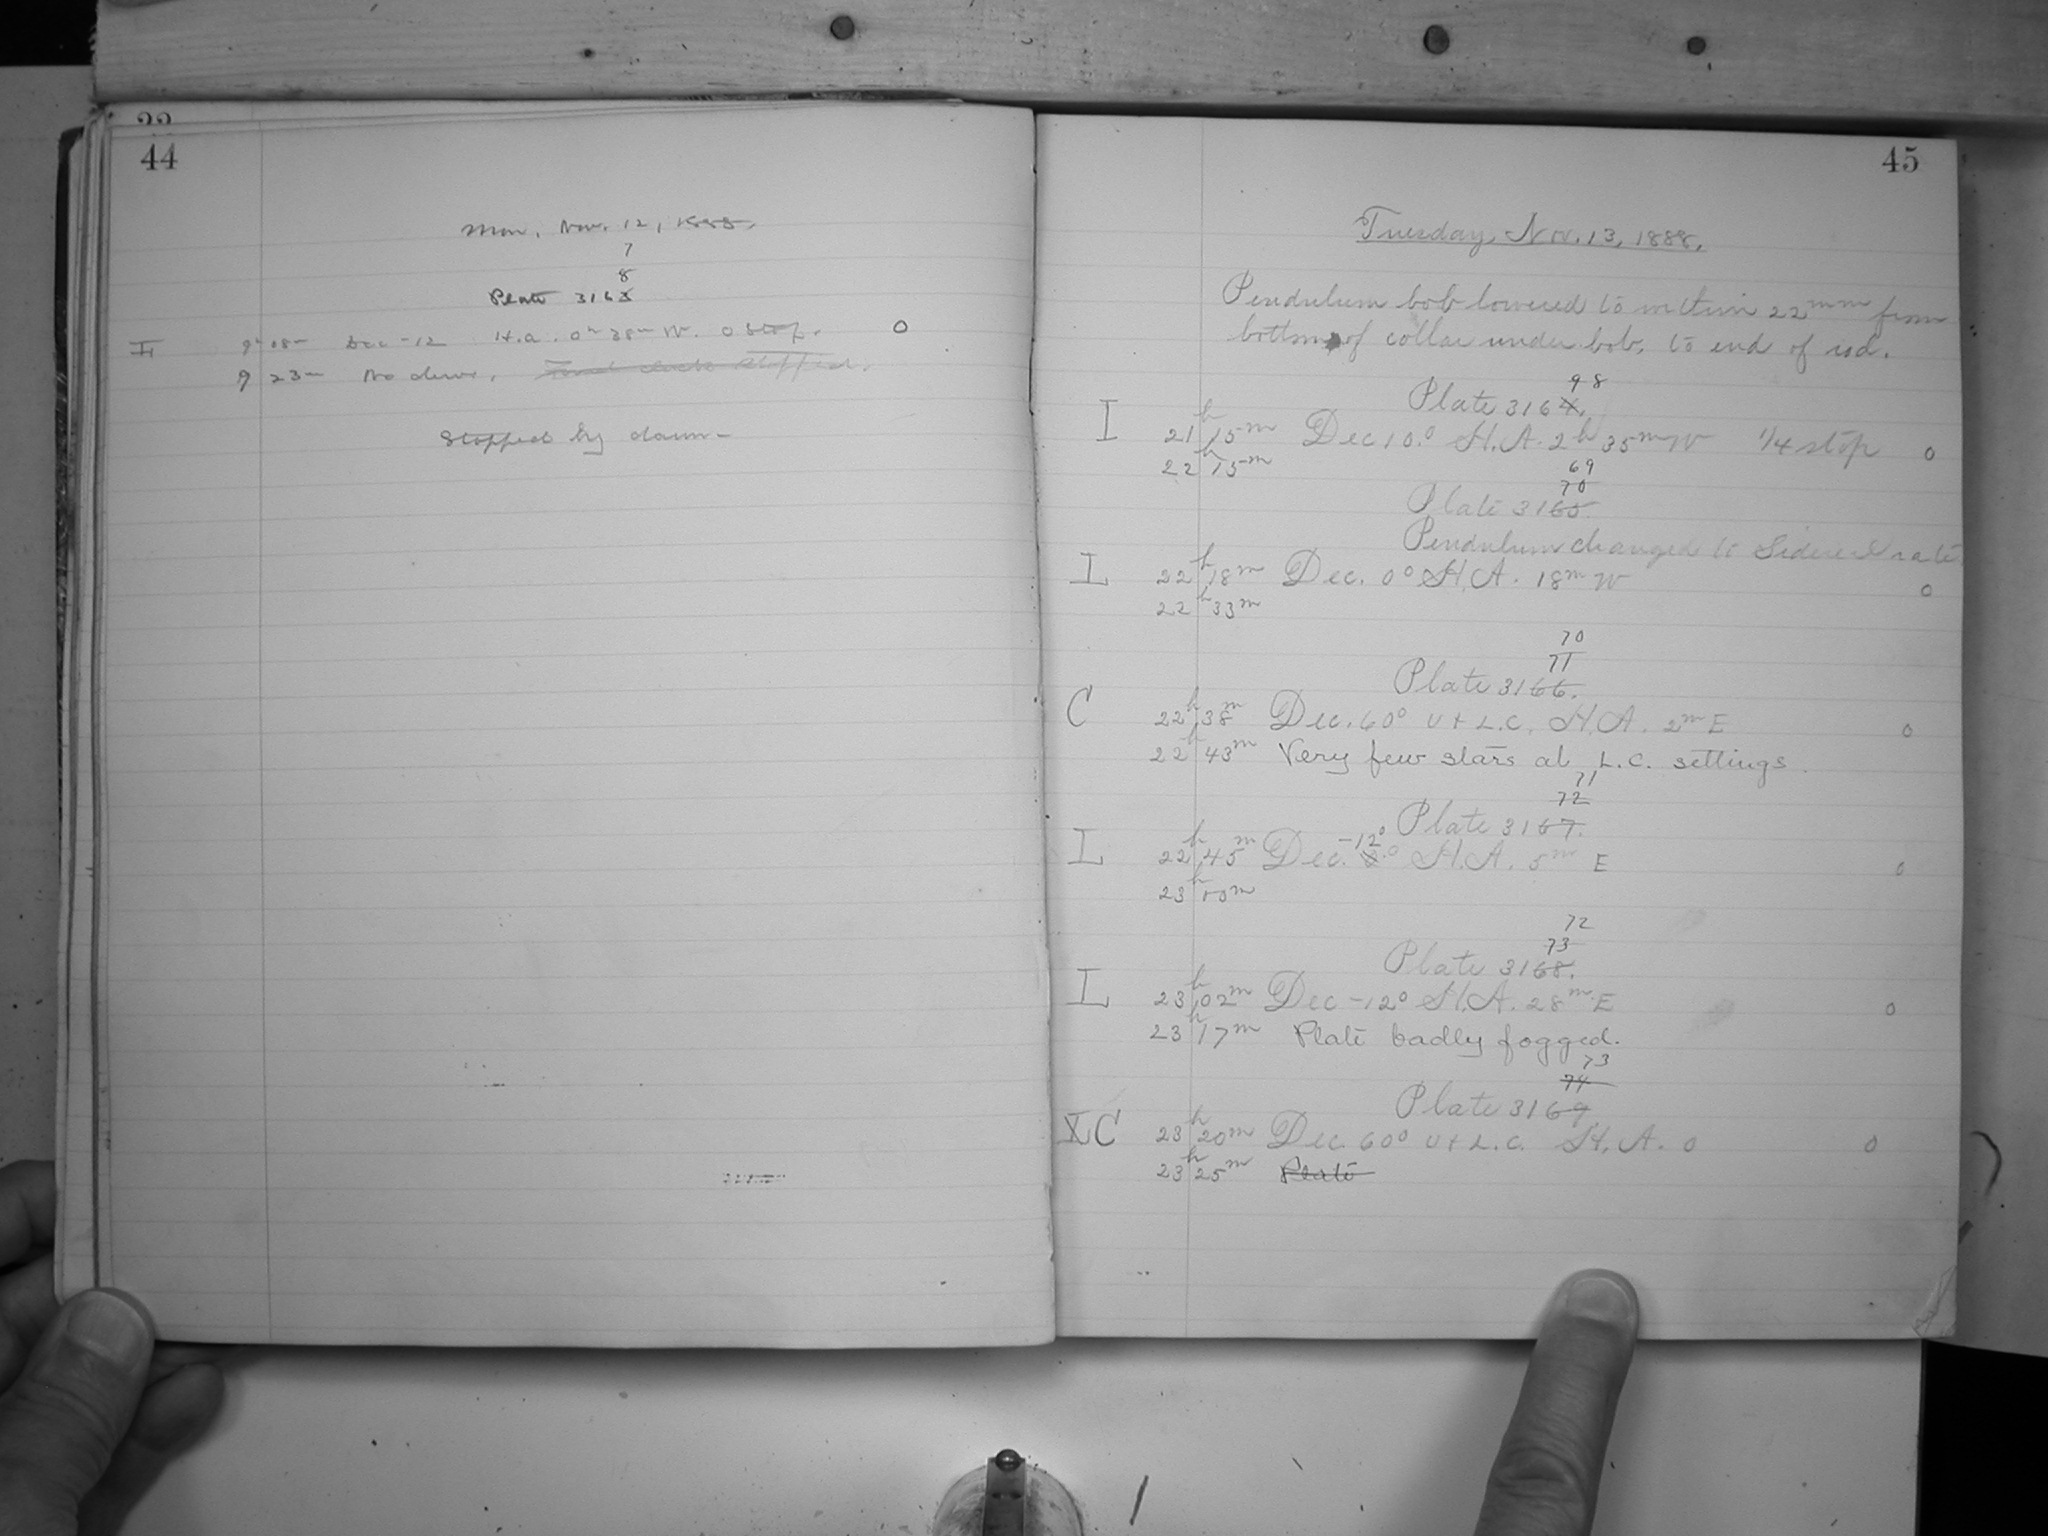 33
44
Mon. Nov. 12, 1888.
7
8
Plate 316
I 9h 08m Dec -12 H.a. 0h 38m W. 0 stop. 0
9 23m No
Stopped by dawn
45
Tuesday, Nov. 13, 1888.
Pendulum bob lowered to within 22mm from
bottom of collar under bob, to end of rod.
9 8
Plate 3164.
I 21h 15m Dec 10.° H.A. 2h 35m W 1/4 stop 0
22h 15m
69
70
Plate 3165.
Pendulum changed to Sidereal rate
I 22h 18m Dec. 0° H.A. 18m W 0
22h 33m
70
71
Plate 3166.
C 22h 38m Dec. 60° U + L.C. H.A. 2m E 0
22h 43m Very few stars at L.C. settings.
71
72
Plate 3167.
-12°
I 22h 45m Dec. ° H.A. 5m E 0
23h 00m
72
73
Plate 3168.
I 23h 02m Dec -12° H.A. 28m E 0
23h 17m Plate badly fogged.
73
74
Plate 3169
I C 23h 20m Dec. 60° U + L.C. H.A. 0 0
23h 25m Plate